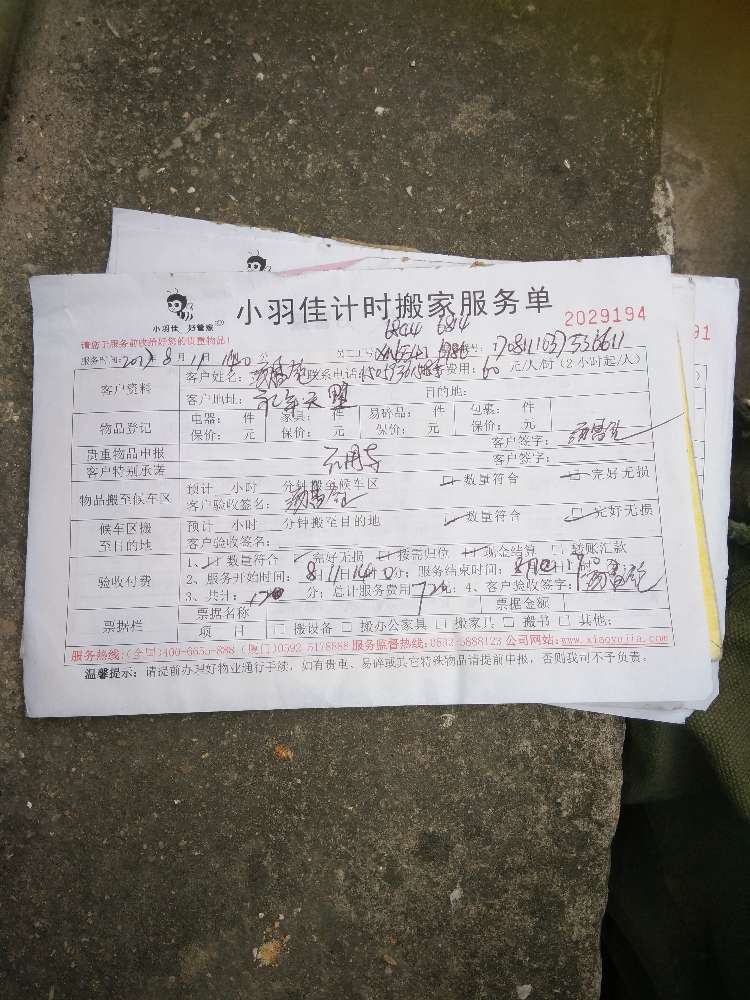 小羽佳 好管家
小羽佳计时搬家服务单
2029194
91
请您于服务前收拾好您的贵重物品!
6844 6814
服务时间: 8月11日
客户资料
客户姓名: 联系电话: 费用: 60 元/人/时(2小时起/人)
客户地址: 目的地:
物品登记
电器: 件 家具: 件 易碎品: 件 包裹: 件
保价: 元 保价: 元 保价: 元 保价: 元
贵重物品申报 客户签字:
客户特别承诺 客户签字:
物品搬至候车区
预计 小时 分钟搬至候车区 数量符合 完好无损
客户验收签名:
候车区搬至目的地
预计 小时 分钟搬至目的地 数量符合 完好无损
客户验收签名:
验收付费
1、数量符合 完好无损 按需归位 现金结算 转账汇款
2、服务开始时间: 8月11日14时0分; 服务结束时间: 8月
3、共计: 分; 总计服务费用 720; 4、客户验收签字:
票据栏
票据名称 票据金额
项 目 搬设备 搬办公家具 搬家具 搬书 其他:
服务热线:(全国)400-6655-888 (厦门)0592-5178888 服务监督热线:0592-5888123 公司网站:www.xiaoyujia.com
温馨提示: 请提前办理好物业通行手续, 如有贵重、易碎或其它特殊物品请提前申报, 否则我司不予负责。